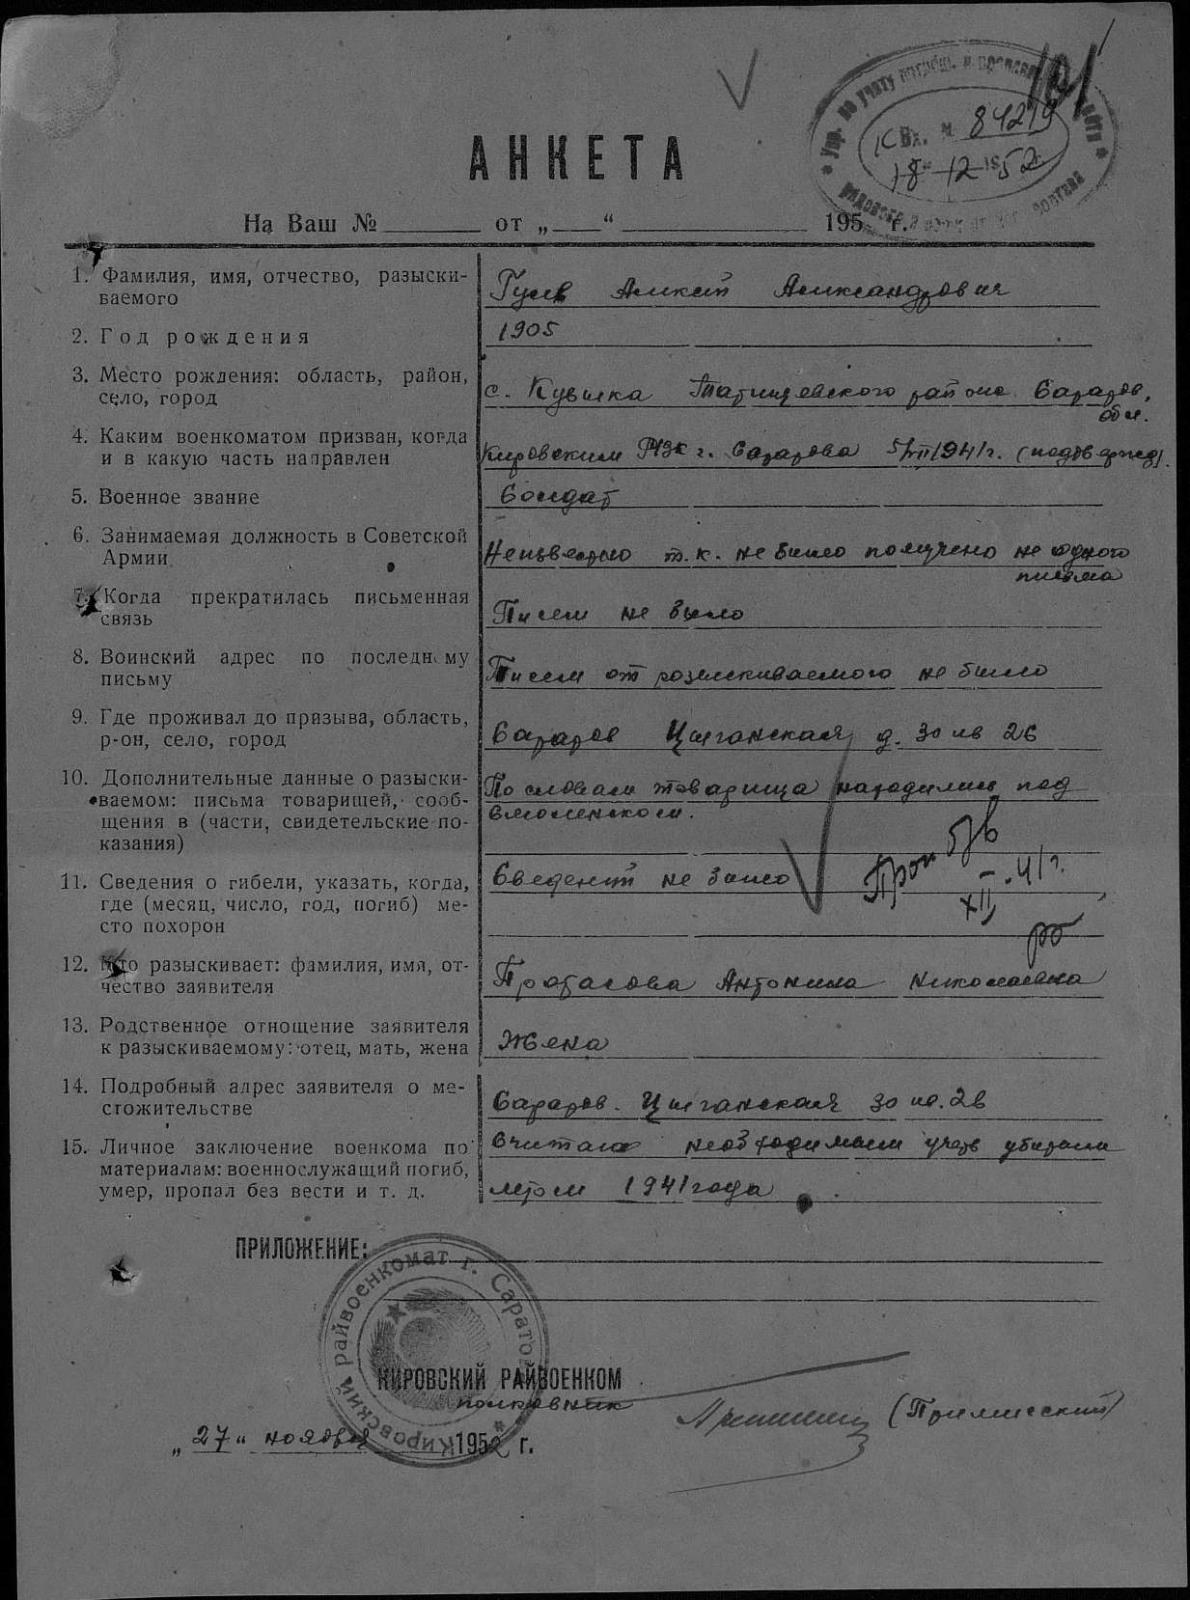 191
Упр. по учету погибш. и пропавш.
Вх. № 84219
18 12 1952
АНКЕТА
На Ваш № от „ “ 195 г.
1. Фамилия, имя, отчество, разыски-
ваемого
Алексей Александрович
2. Год рождения
1905
3. Место рождения: область, район,
село, город
с. Кувыка Татищевского района Саратов.
обл.
4. Каким военкоматом призван, когда
и в какую часть направлен
Кировским РВК г. Саратова 5/VII 1941г. (подтвержд).
5. Военное звание
Солдат
6. Занимаемая должность в Советской
Армии
Неизвестно т.к. не было получено не одного
письма
7. Когда прекратилась письменная
связь
Писем не было
8. Воинский адрес по последнему
письму
Писем от розыскиваемого не было
9. Где проживал до призыва, область,
р-он, село, город
Саратов Цыганская д. 30 кв 26
10. Дополнительные данные о разыски-
ваемом: письма товарищей, сооб-
щения в (части, свидетельские по-
казания)
По словам товарища находились под
Смоленском.
11. Сведения о гибели, указать, когда,
где (месяц, число, год, погиб) ме-
сто похорон
Сведений не было
Проп б/в
XII – 41г.
12. Кто разыскивает: фамилия, имя, от-
чество заявителя
Протасова Антонина Николаевна
13. Родственное отношение заявителя
к разыскиваемому: отец, мать, жена
Жена
14. Подробный адрес заявителя о ме-
стожительстве
Саратов. Цыганская 30 кв. 26
15. Личное заключение военкома по
материалам: военнослужащий погиб,
умер, пропал без вести и т. д.
Считаю необходимым учесть убитым
летом 1941 года
ПРИЛОЖЕНИЕ:
Кировский райвоенкомат г. Саратов
КИРОВСКИЙ РАЙВОЕНКОМ
полковник
„27“ ноября 1952 г.